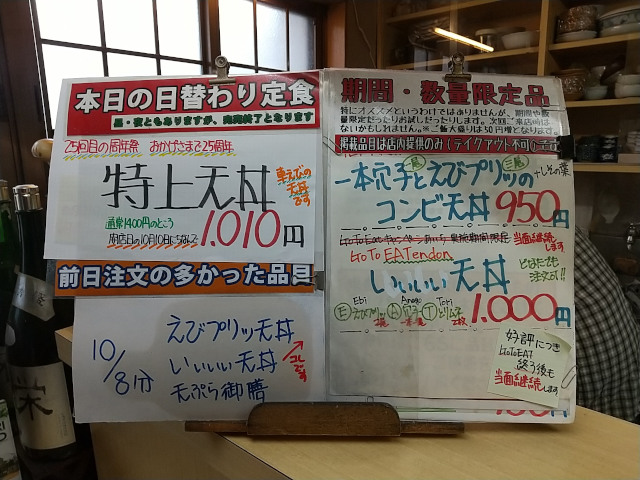 本日の日替わり定食
昼・夜ともありますが、売切終了となります
25回目の周年祭 おかげさまで25周年
特上天丼
車えびの
天丼
です
通常1400円のところ
開店日の10月10日にちなんで
1.010円
前日注文の多かった品目
10/8分
えびプリッツ天丼
いいいい天丼
天ぷら御膳
コレです
期間・数量限定品
特にオススメというわけではありませんが、期間や数
量限定だったりお試しだったりします。次回ご来店時は
ないかもしれません。※ご飯大盛りは50円増となります。
掲載品目は店内提供のみ(テイクアウト不可の品)
一本穴子とえびプリッツの
+しその葉
コンビ天丼 950円
GoToEatキャンペーン 実施期間限定
当面継続します
GoTo EATendon
いいいい天丼
どなたでも
注文可!!
1.000円
Ebi Anago Tori
Ⓔえびプリッツ2本 Ⓐ穴子一本 Ⓣとりムネ2枚
好評につき
GoToEAT
終了後も
当面継続します
栄